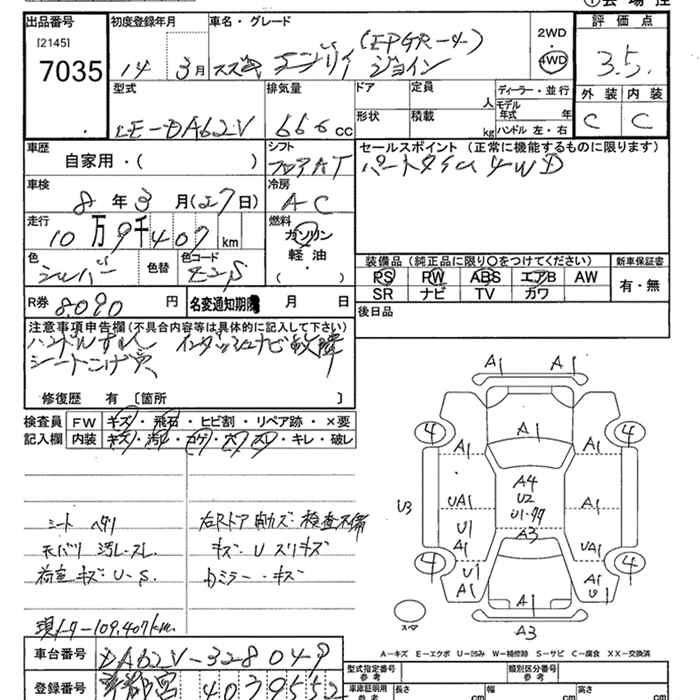 ① 会 場 控
出品番号 初度登録年月 車名・グレード 2WD 評価点
[2145] (EPGR-4) 4WD
7035 14 3月 スズキ エブリイ ジョイン 3.5.
型式 排気量 ドア 定員 人 ディーラー・並行 外装 内装
モデル年式 年
LE-DA62V 666cc 形状 積載 kg ハンドル 左・右 C C
車歴 シフト セールスポイント (正常に機能するものに限ります)
自家用・( ) フロアAT パートタイム4WD
車検 冷房
8年3月(27日) AC
走行 燃料
10万9千407km ガソリン
軽油
・( )
色 色替 色コード
シルバー Z2S
装備品 (純正品に限り〇をつけてください) 新車保証書
PS PW ABS エアB AW 有・無
SR ナビ TV カワ
R券 8.090円 名変通知期限 月 日 後日品
注意事項申告欄(不具合内容等は具体的に記入して下さい)
ハンドルすれ インダッシュナビ故障
シートこげ穴
修復歴 有 〔箇所 〕
検査員記入欄 FW キズ・飛石・ヒビ割・リペア跡・×要
内装 キズ・汚れ・コゲ・穴・スレ・キレ・破レ
シート ヘタリ 右Rドア 検査不備
天バリ 汚レ・スレ キズ・U スリキズ
荷室 キズ・U・S. Dミラー・キズ
現メーター109.407km
A1 A1
4 A1 4
A1 A1
A4
U2
U3 UA1 A1
U1・
U1 A3
A1 UA1
4 4
U1 A1
A1 A1 U
スペア A3
A-キズ E-エクボ U-凹み W-補修跡 S-サビ C-腐食 XX-交換済
車台番号 DA62V-328049 型式指定番号 参考 類別区分番号 参考
登録番号 宇都宮 40 39552 車庫証明用 参考 長さ cm 幅 cm 高さ cm